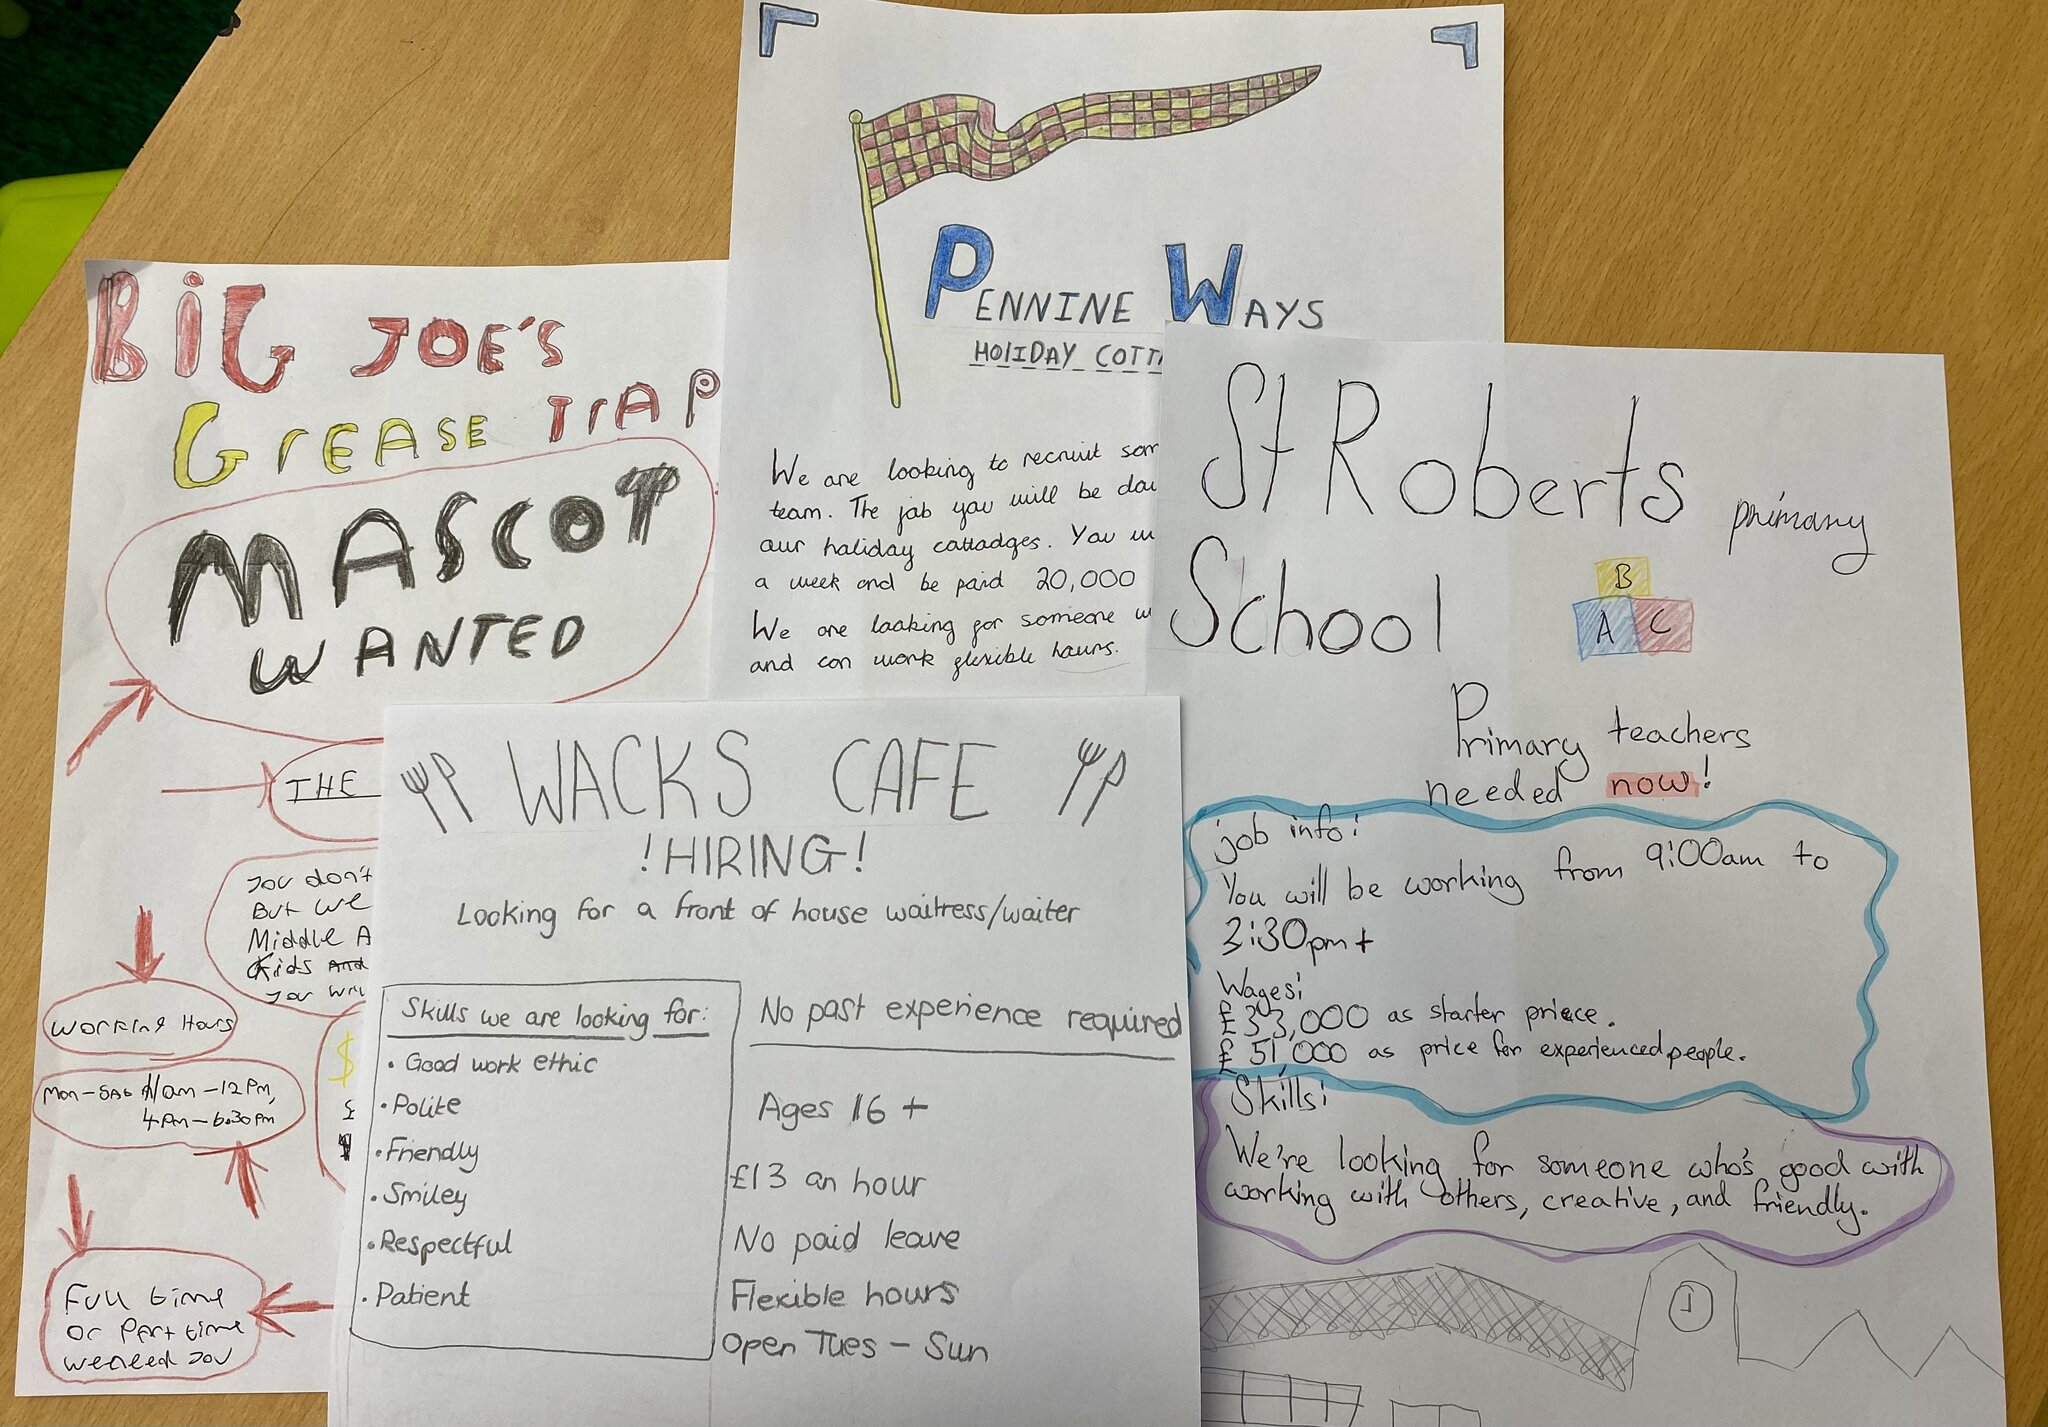 BIG JOE'S
GREASE TRAP
MASCOT
WANTED
THE
You don't
But we
Middle A
Kids And
You
Working Hours
Mon-Sat 11am-12pm,
4pm-6:30pm
$
£
Full time
or Part time
we need you
PENNINE WAYS
HOLIDAY COTT
We are looking to recruit som
team. The job you will be doi
our holiday cottadges. You w
a week and be paid 20,000
We are looking for someone w
and can work flexible hours.
WACKS CAFE
!HIRING!
Looking for a front of house waitress/waiter
Skills we are looking for:
• Good work ethic
• Polite
• Friendly
• Smiley
• Respectful
• Patient
No past experience required
Ages 16 +
£13 an hour
No paid leave
Flexible hours
Open Tues - Sun
St Roberts primary
School
B
A C
Primary teachers
needed now!
job info:
You will be working from 9:00am to
3:30pm+
Wages:
£33,000 as starter priece.
£51,000 as price for experienced people.
Skills:
We're looking for someone who's good with
working with others, creative, and friendly.